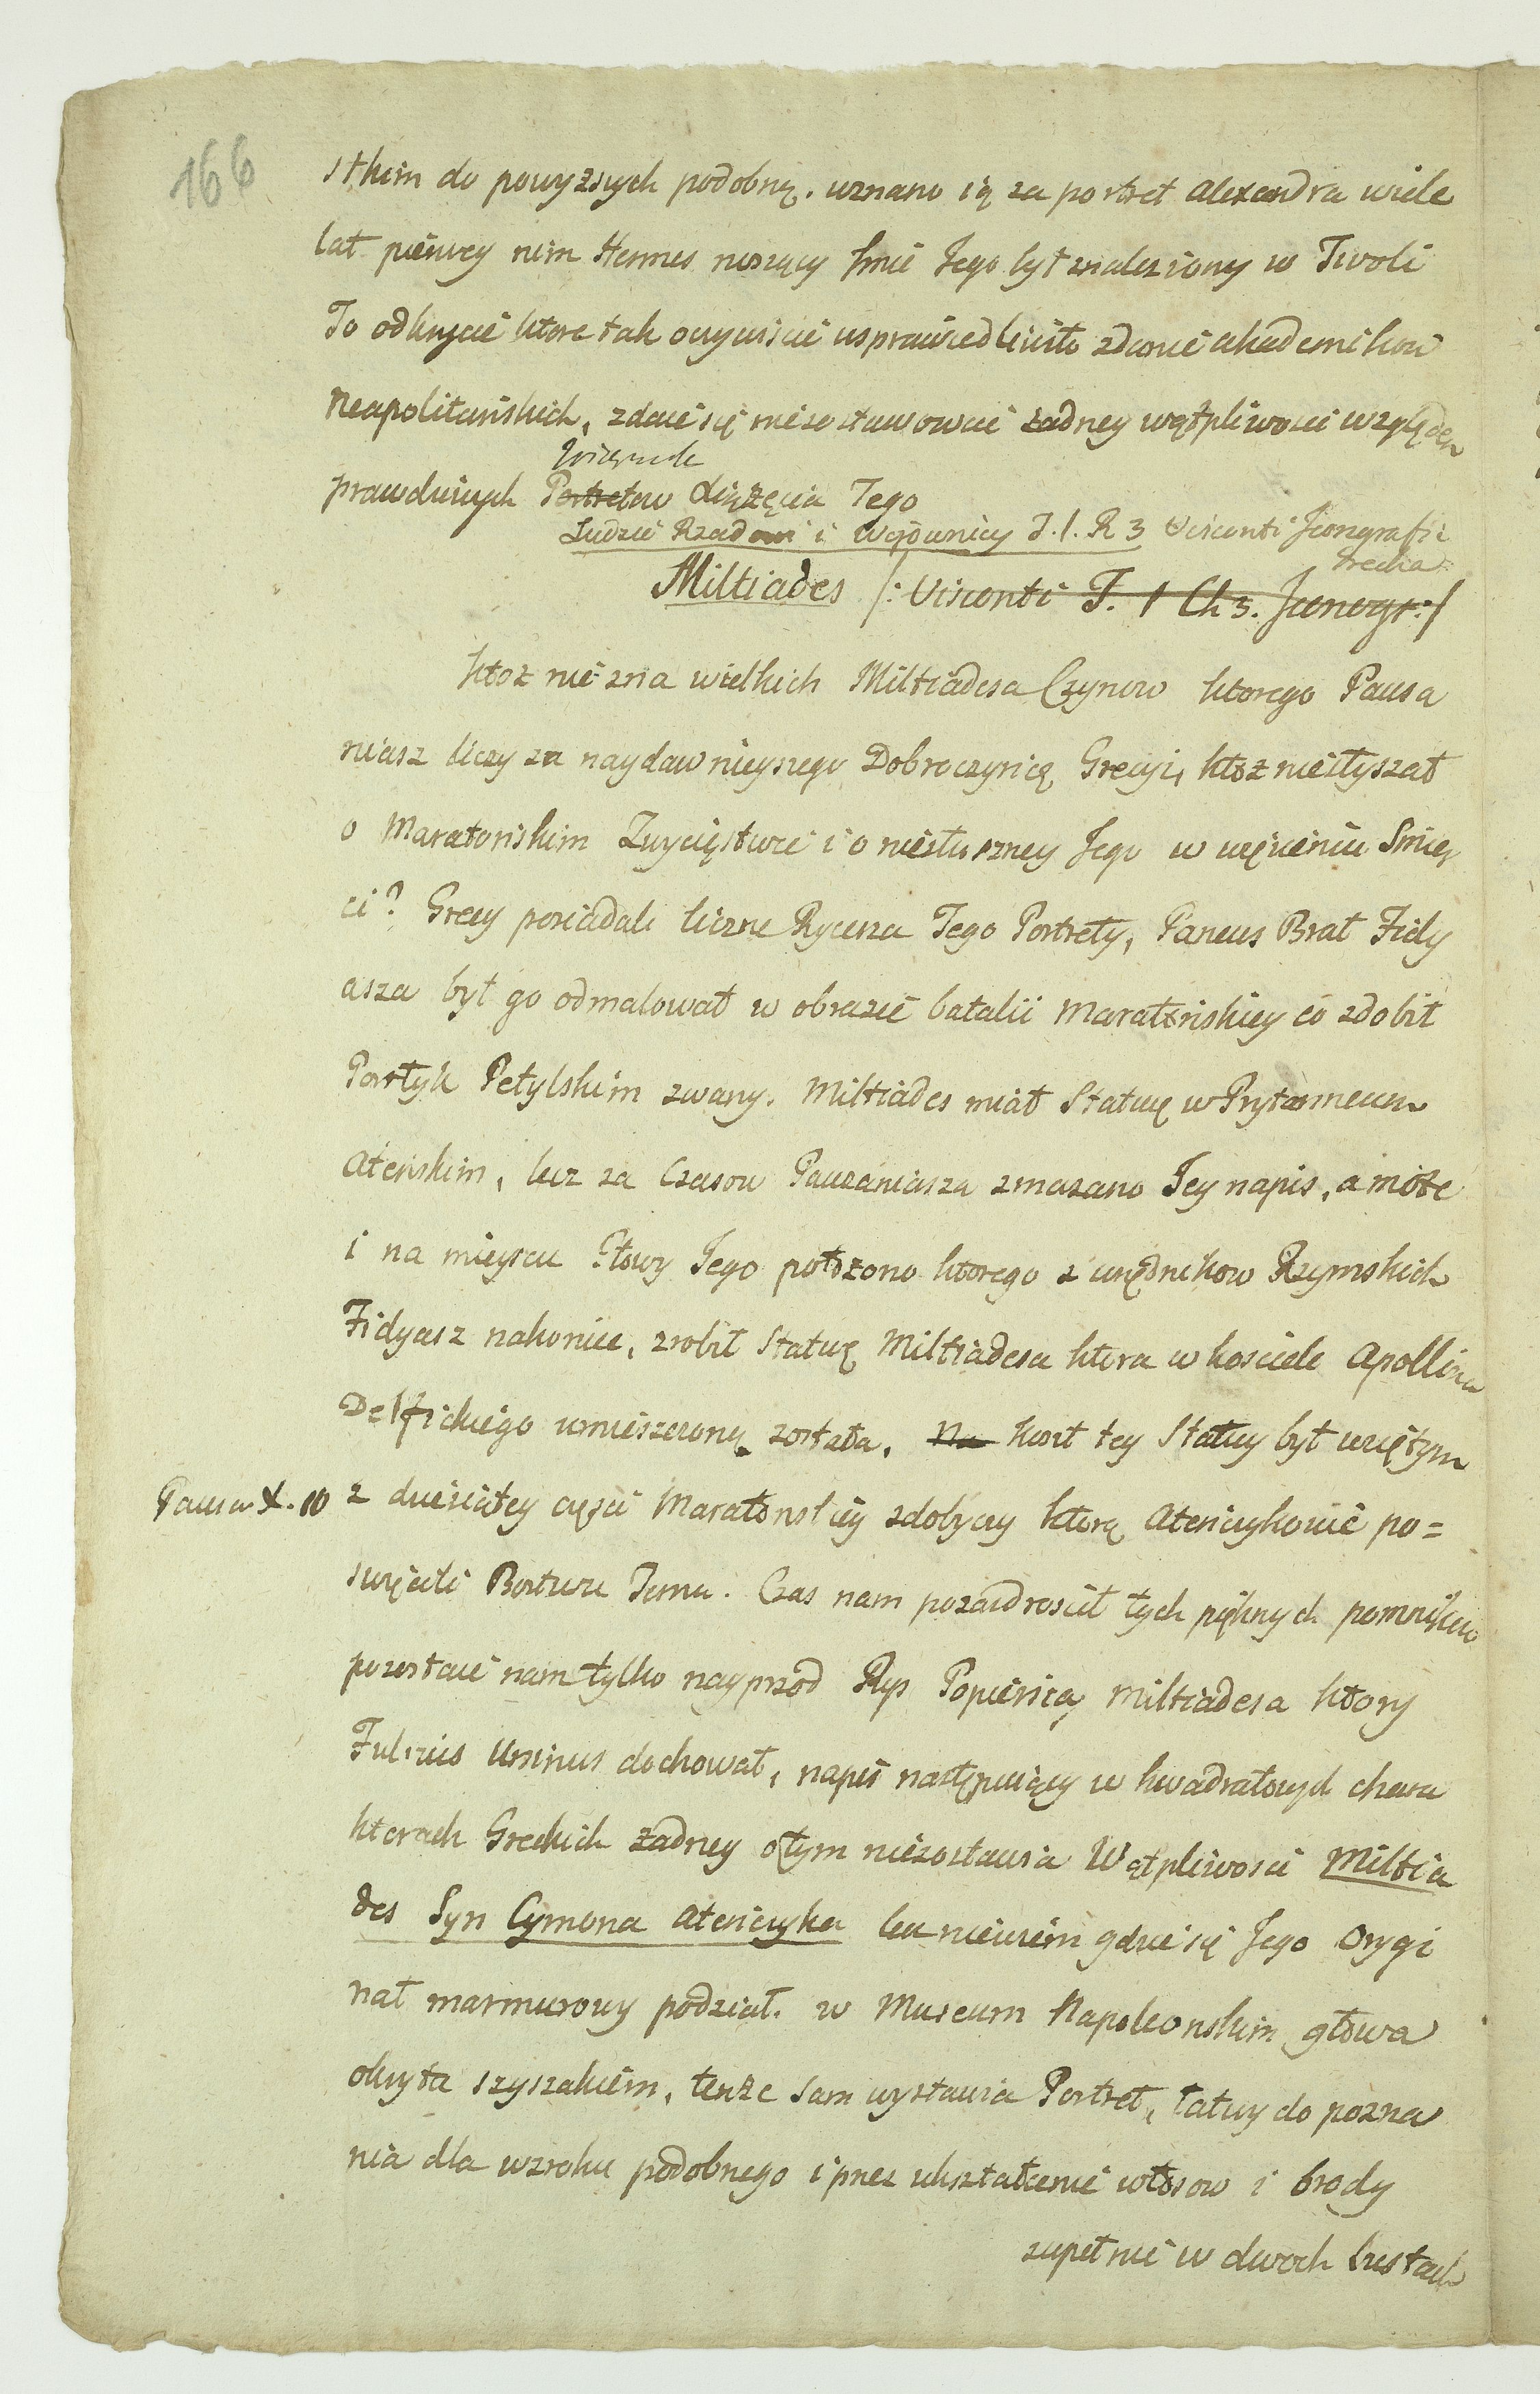 166
stkim do powyższych podobną. uznano ią za portret Alexandra wiele
lat pierwey nim Hermes noszący Imie Jego był znaleziony w Tivoli
To odkrycie ktore tak oczywiscie usprawiedliwiło zdanie akademikow
Neapolitańskich, zdaie się niezostawować żadney wątpliwosci względem
prawdziwych Portretow xiążęcia Tego
Ludzie Rządowi i Wojownicy T. I. R 3 Visconti Iconografii
Grecka
Miltiades /: Visconti T. 1 Ch 3. Iconogr:/
Ktoż nie zna wielkich Miltiadesa Czynow ktorego Pausa
niasz liczy za naydawnieyszego Dobroczyńcę Grecyi, ktoż niesłyszał
o Maratońskim Zwycięstwie i o niesłuszney Jego w więzieniu Smier
ci? Grecy posiadali liczne Rycerza Tego Portrety, Paneus Brat Fidy
asza był go odmalował w obrazie batalii Maratońskiey co zdobił
Portyk Petylskim zwany. Miltiades miał Statuę w Prytaneum
Ateńskim, lecz za Czasow Pauzaniasza zmazano Jey napis, a może
i na mieyscu Głowy Jego położono ktorego z urzędnikow Rzymskich
Fidyasz nakoniec, zrobił Statuę Miltiadesa ktora w kosciele Apollina
Delfickiego umieszczoną została. Na koszt tey Statuy był wziętym
Pausa X. 10 z dziesiątey częsci Maratonskiey zdobyczy którą Atenczykowie po=
swięcili Bostwu Temu. Czas nam pozazdroscił tych pięknych pomnikow
pozostaie nam tylko nayprzod Rys Popiersia Miltiadesa ktory
Fulvius Ursinus dochował, napis następuiący w kwadratowych chara
kterach Greckich żadney o tym niezostawia Wątpliwosci Miltia
des Syn Cymona Atenczyka lecz niewiem gdzie się Jego Orygi
nał marmurowy podział. w Museum Napoleonskim głowa
okryta szyszakiem, tenże sam wystawia Portret, łatwy do pozna
nia dla wzroku podobnego i przez ukształcenie włosow i brody
zupełnie w dwoch bustach